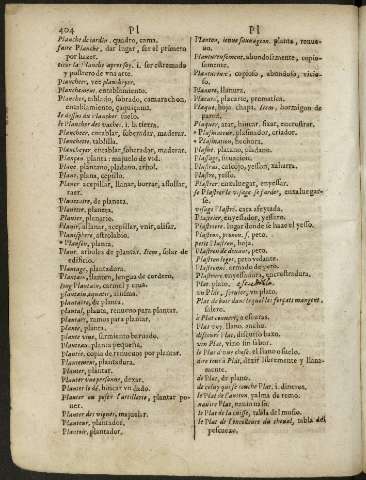 404 Pl Pl
Planche de iardin, quadro, tama.
faire Planche, dar lugar, ser el primero
por hazer.
tirer la Planche apres soy. i. ser estremado
y postrero de vna arte.
Plancheer, vee planchéyer.
Plancheieur, entablamiento.
Plancher, tablado, sobrado, camaranchon,
entablamiento,
le dessus du Plancher, suelo.
le Plancher des vaches. i. la tierra.
Plancheer, entablar, soberadar, maderar.
Planchette, tablilla.
Plancheyer, entablar, soberadar, maderar.
Plançon, planta: majuelo de vid.
Plane, plantano, pladano, arbol.
Plane, plana, cepillo.
Planer, acepillar, llanar, borrar, assolar,
raer.
Planetaire, de planeta.
Planete, planeta.
Planier, plenario.
Planir, allanar, acepillar, vnir, alisar.
Planisphere, astrolabio.
* Planson, planta.
Plant, arboles de plantar. Item, solar de
edificio.
Plantage, plantadora.
Plantain, llanten, lengua de cordero,
long Plantain, carmel y
plantain aquatic, alisma.
plantaire, de planta.
plantat, planta, renueuo para plantar.
plantats, ramos para plantar.
plante, planta.
plante viue, sarmiento baruado.
Planteau, planta pequeña.
Plantée, copia de renueuos por plantar.
Plantement, plantadura.
Planter, plantar.
Planter vne personne, dexar.
Planter le dé, hincar vn dado.
Planter ou poser l'artillerie, plantar poner.
Planter des vignes, majuelar.
Planteur, plantador.
Planteur, plantador.
Planton, ieune sauuageon, planta, renueuo.
Plantureusement, abondosamente, copiosamente.
Plantureux, copioso, abondoso, vicioso.
Planure, llanura.
Placart, placarte, promatica.
Plaque, hoja, chapa. Item, hormigon de
pared.
Plaquer, atar, hincar, fixar, encrostrar.
* Plasmateur, plasmador, criador.
* Plasmation, hechura.
Plasne, platano, pladano.
Plassage, situacion.
Plastras, cascojo, yesson, zaharra.
Plastre, yesso.
Plastrer, entaluegar, enyessar.
se Plastrer le visage se farder, entaluegarse.
visage Plastré, cara afeytada.
Plastrier, enyessador, yessero.
Plastriere, lugar donde se haze el yesso.
Plastron, ieunne. f. peto.
petit Plastron, hoja.
Plastron de deuant, peto.
Plastron leger, peto volante.
Plastronné, armado de peto.
Plastreure enyessadura, encrostradura.
Plat, plato.
vn Plat, seruice, vn plato.
Plat de bois dans lequel les forçats mangent,
salero.
à Plat couuert, a escuras.
Plat ouy, llano, ancho.
discours Plat, discurso baxo.
vin Plat, vino sin sabor.
le Plat d'vne chose, el llano o suelo.
dire tout à Plat, dezir libremente y llanamente.
de Plat, de plano.
de celuy qui se couche Plat, i. dineros.
le Plat de l'auiron, palma de remo.
nauire Plat, nauio ras.
le Plat de la cuisse, tabla del muslo.
le Plat de l'encolleure du cheual, tabla del
pescueço.